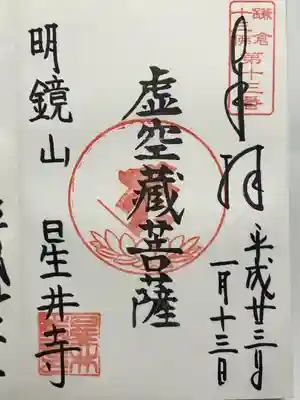 鎌倉
第十三番
奉拝
平成廿三年
一月十三日
虚空藏菩薩
明鏡山 星井寺